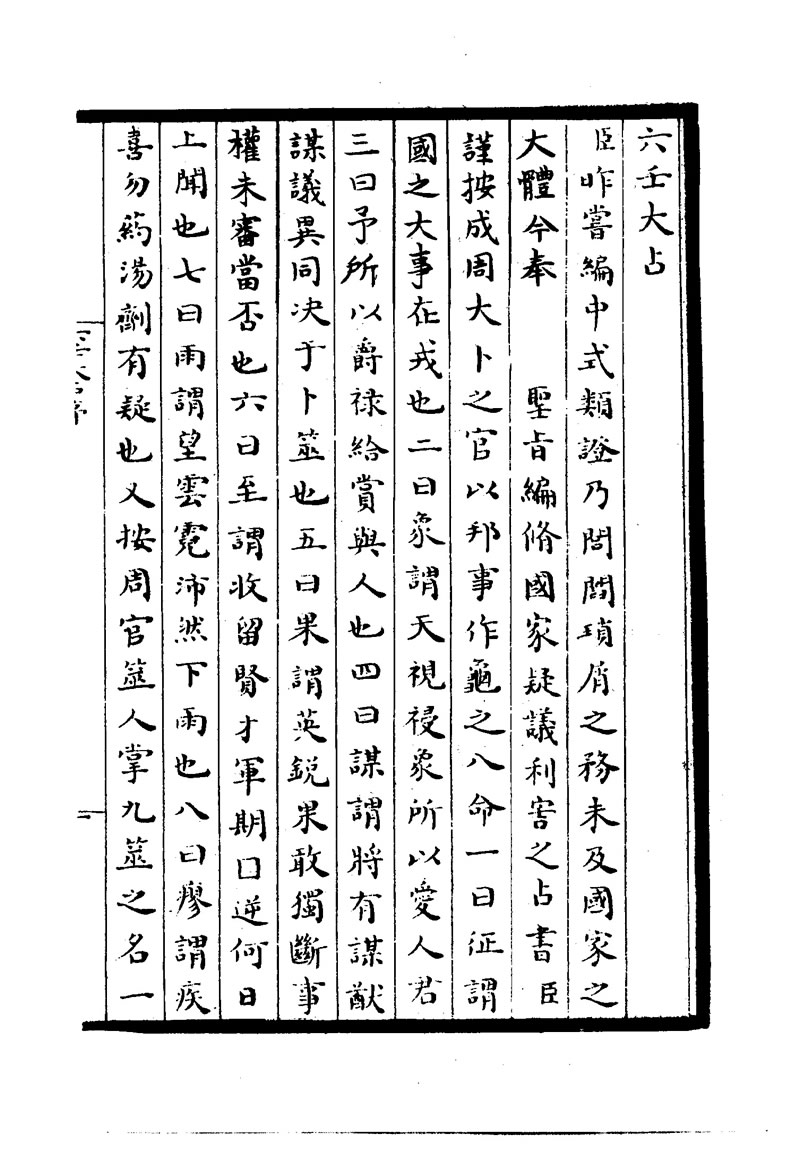 六壬大占
臣昨嘗編中式類證乃閭閻瑣屑之務未及國家之
大體今奉　聖旨編脩國家疑議利害之占書臣
謹按成周大卜之官以邦事作龜之八命一曰征謂
國之大事在戎也二曰象謂天視祲象所以愛人君
三曰予所以爵祿給賞與人也四曰謀謂將有謀猷
謀議異同决于卜筮也五曰果謂英銳果敢獨斷事
權未審當否也六曰至謂收留賢才軍期口逆何日
上聞也七曰雨謂望雲霓沛然下雨也八曰瘳謂疾
喜勿藥湯劑有疑也又按周官筮人掌九筮之名一